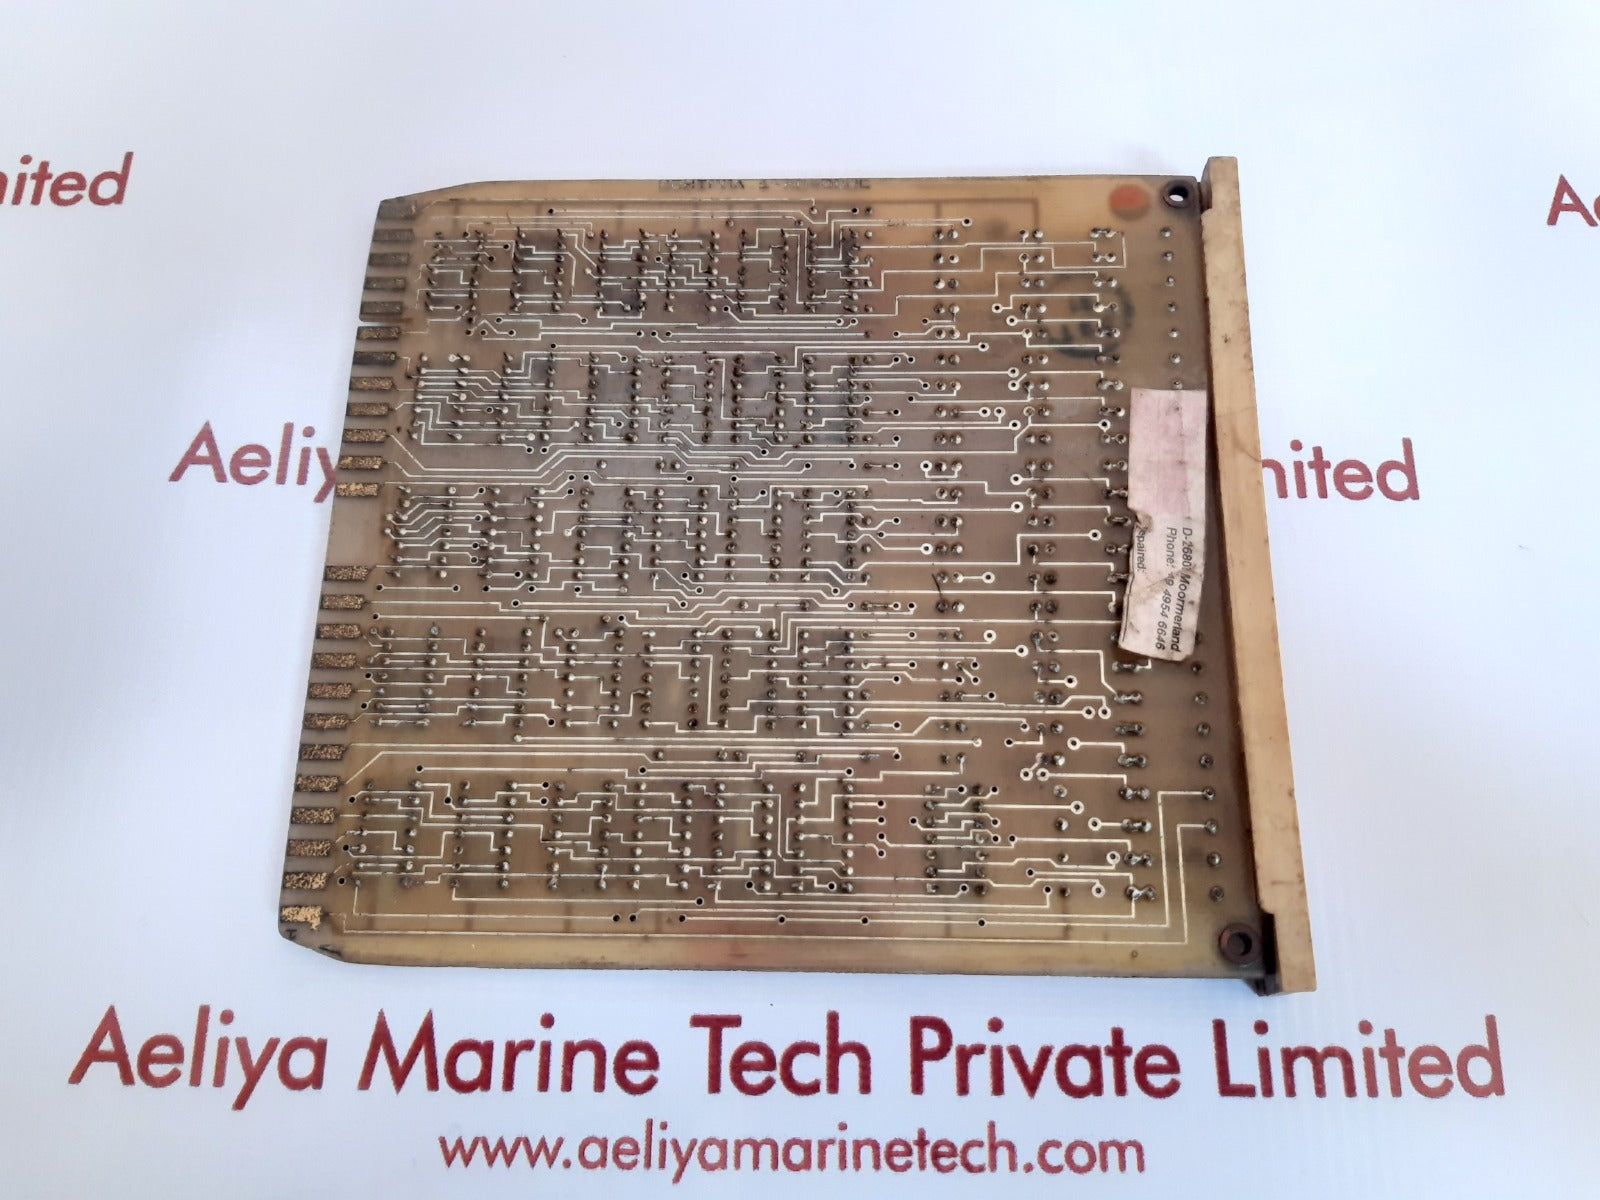 nited
Ae
Aeliy
nited
D-26802 Moormerland
Phone: 49 4954 6646
paired:
I
Aeliya Marine Tech Private Limited
www.aeliyamarinetech.com